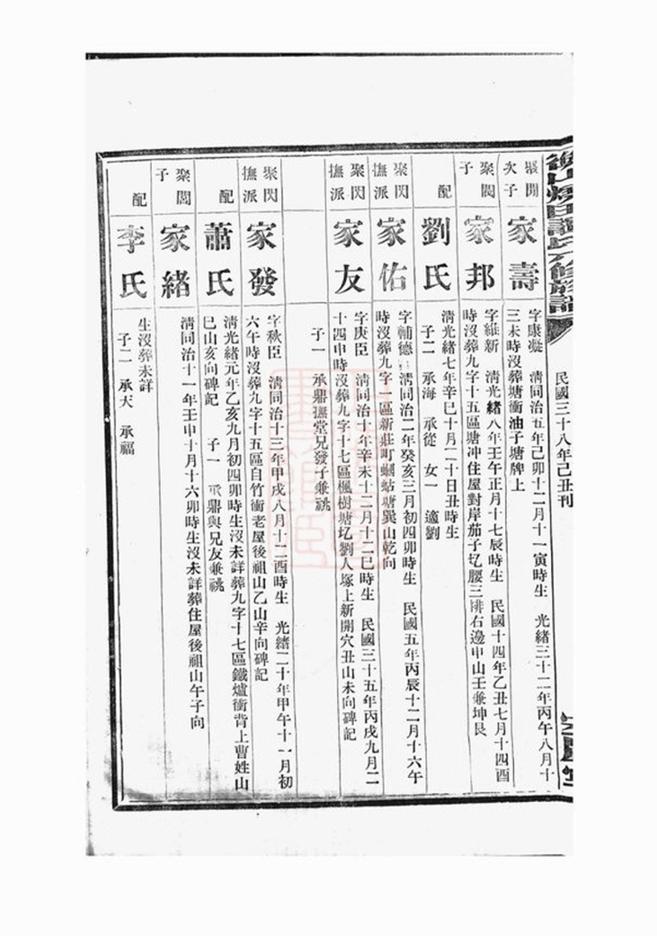 民國三十八年己丑刊
聚閗
次子
家壽
字康凝 清同治五年己卯十二月十一寅時生 光緒三十二年丙午八月十
三未時沒葬塘衝油子塘牌上
聚閣
子
家邦
字維新 清光緒八年壬午正月十七辰時生 民國十四年乙丑七月十四酉
時沒葬九字十五區塘冲住屋對岸茄子圪腰三排右邊申山壬兼坤艮
配
劉氏
清光緒七年辛巳十月二十日丑時生
子二 承海 承從 女一 適劉
聚閃
撫派
家佑
字補德 清同治二年癸亥三月初四卯時生 民國五年丙辰十二月十六午
時沒葬九字一區新莊町蟈蛄塘巽山乾向
聚閃
撫派
家友
字庚臣 清同治十年辛未十二月十二巳時生 民國三十五年丙戌九月二
十四申時沒葬九字十七區楓樹塘圪劉人塚上新開穴丑山未向碑記
子一 承鼎撫堂兄發子兼祧
聚閃
撫派
家發
字秋臣 清同治十三年甲戌八月十二酉時生 光緒二十年甲午十一月初
六午時沒葬九字十五區自竹衝老屋後祖山乙山辛向碑記
配
蕭氏
清光緒元年乙亥九月初四卯時生沒未詳葬九字十七區鐵爐衝背上曹姓山
巳山亥向碑記 子一 承鼎與兄友兼祧
聚閣
子
家緒
清同治十一年壬申十月十六卯時生沒未詳葬住屋後祖山午子向
配
李氏
生沒葬未詳
子二 承天 承福